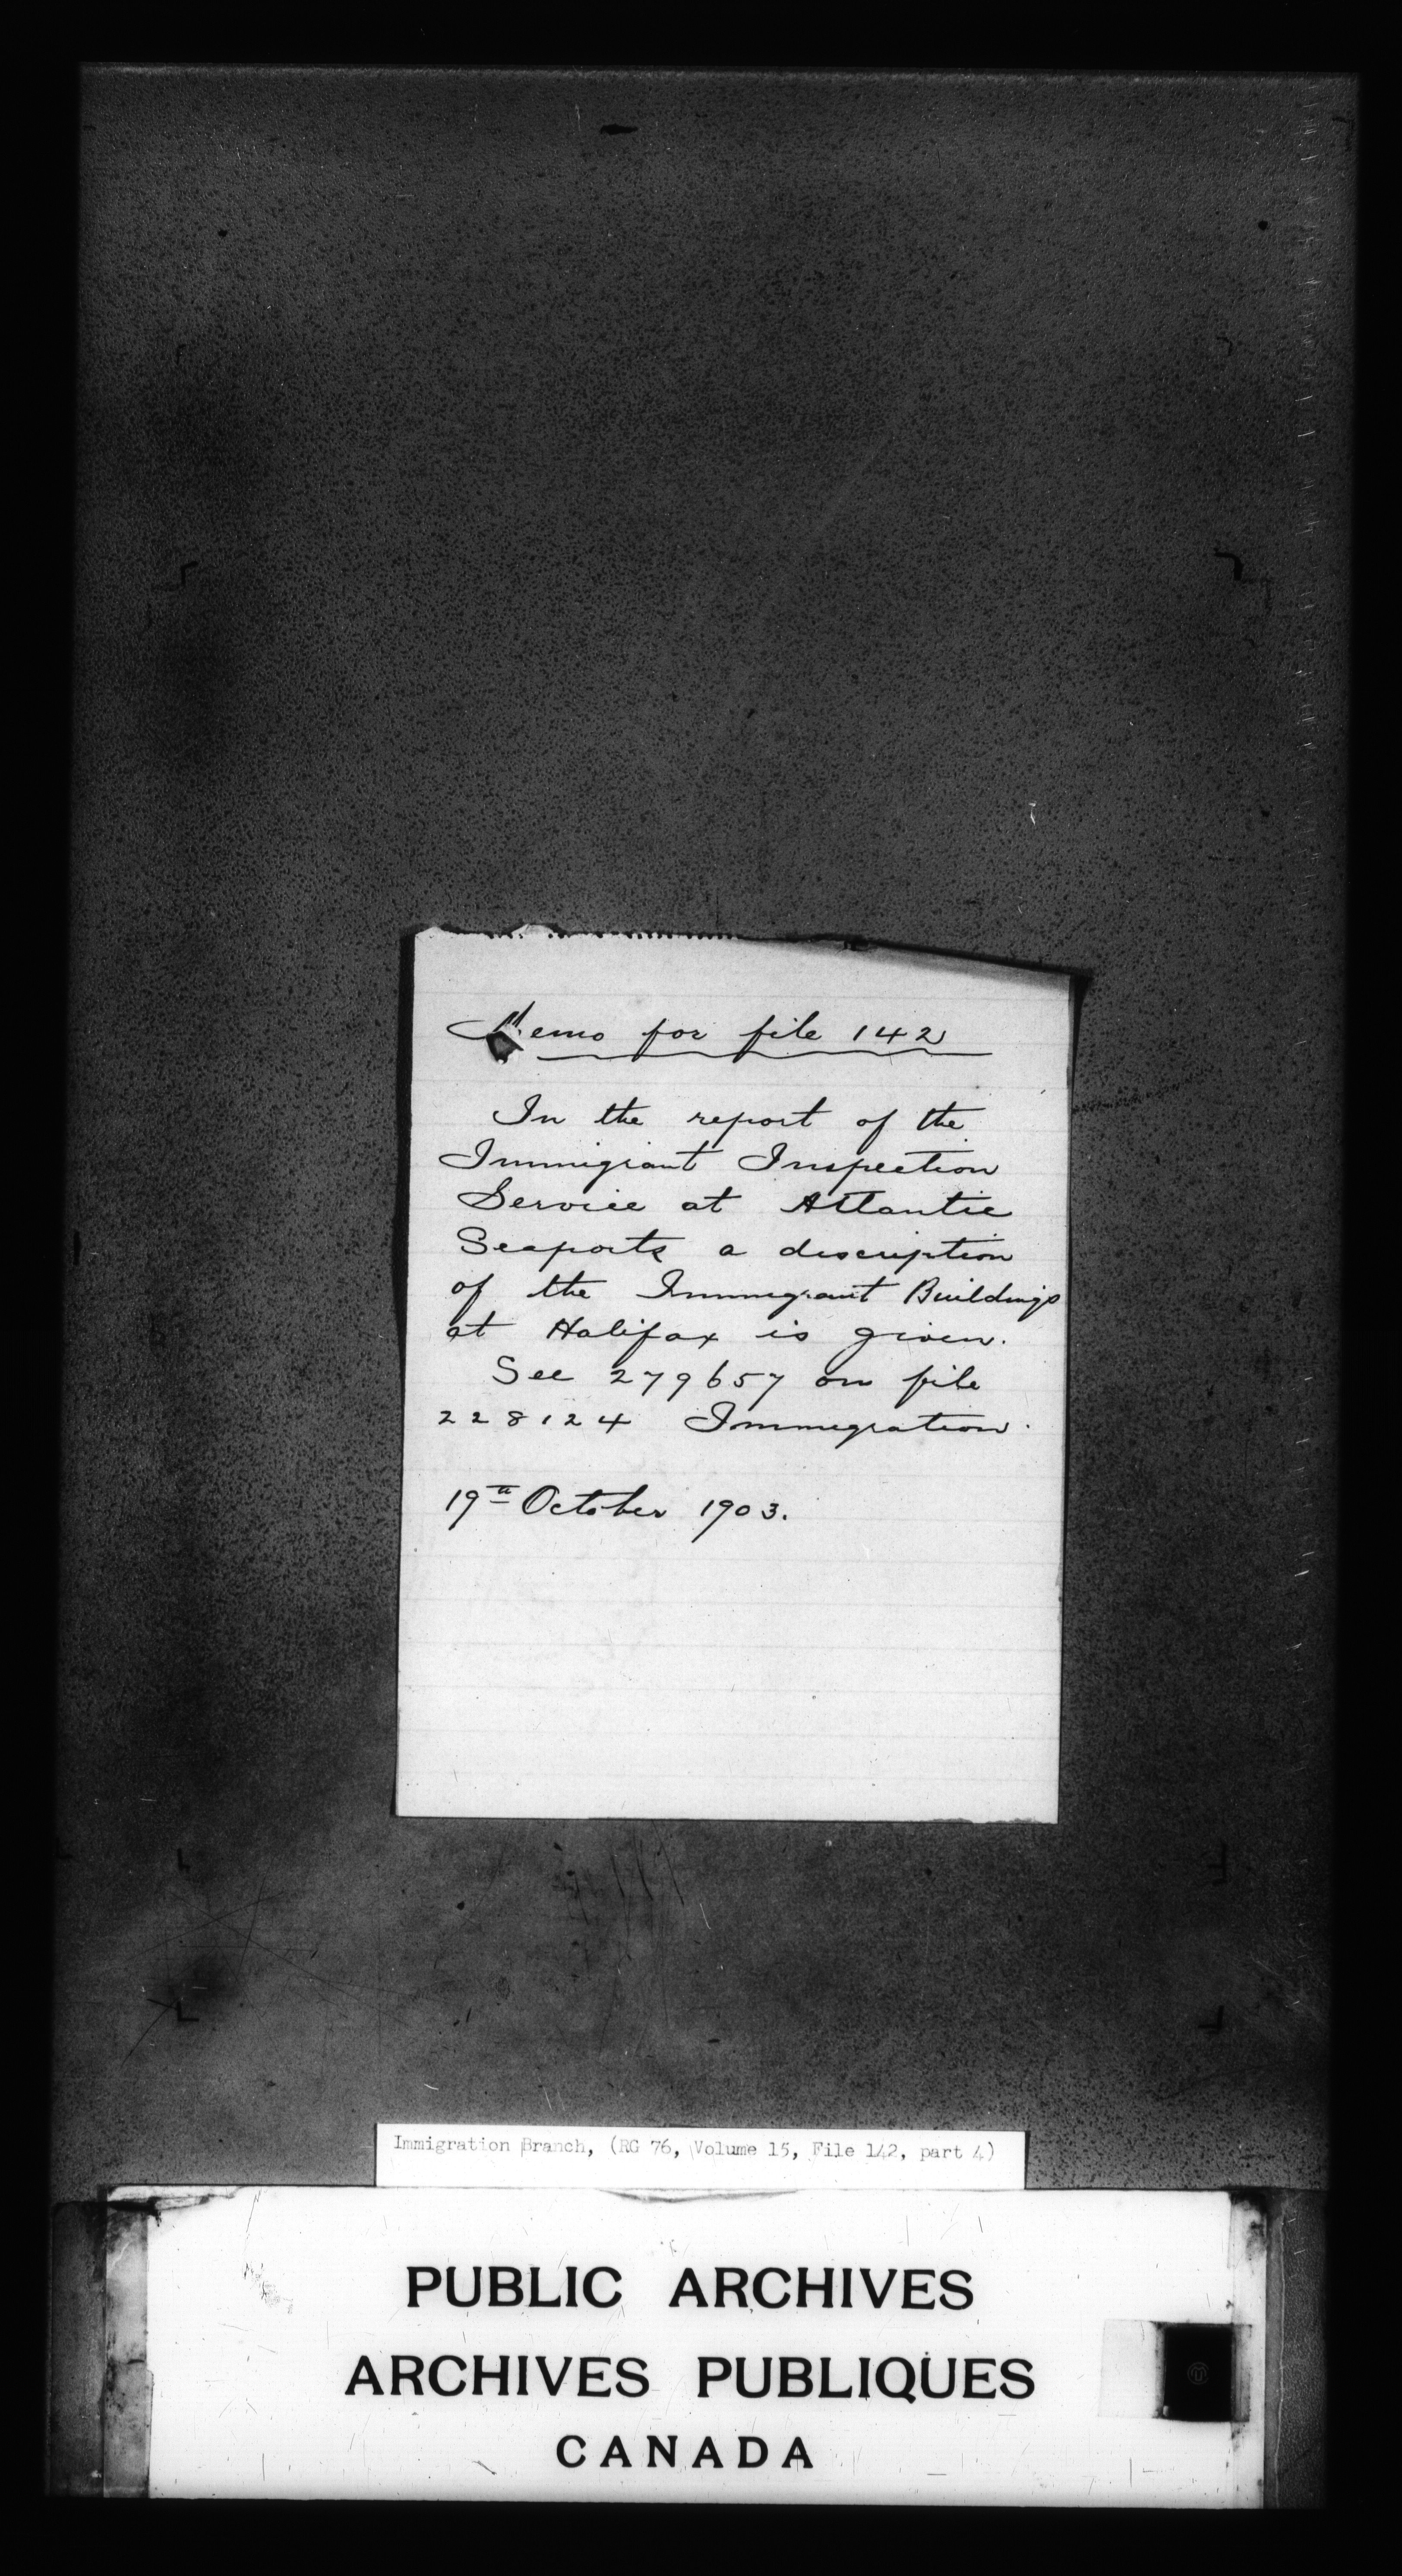 Memo for file 142
In the report of the
Immigrant Inspection
Service at Atlantic
Seaports a description
of the Immigrant Buildings
at Halifax is given.
See 279657 on file
228124 Immigration.
19th October 1903.
Immigration Branch, (RG 76, Volume 15, File 142, part 4)
PUBLIC ARCHIVES
ARCHIVES PUBLIQUES
CANADA